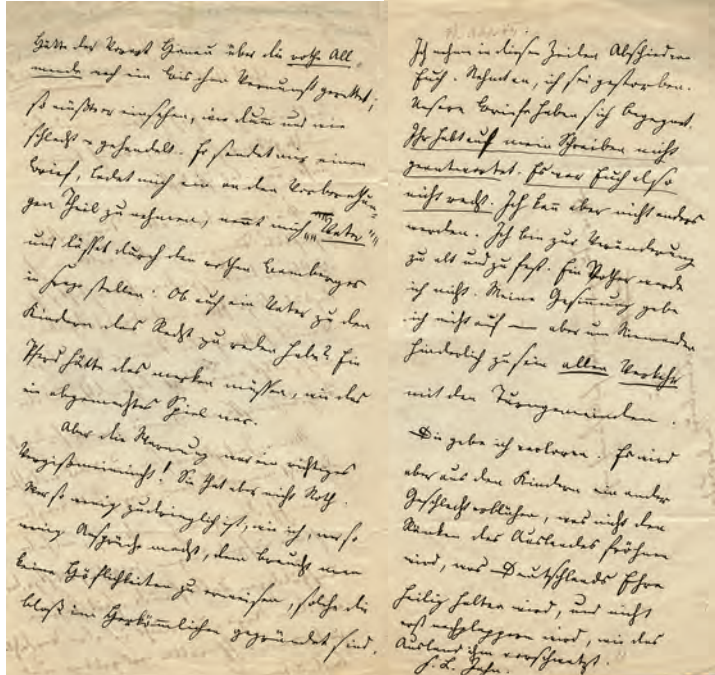 Hätte der Vorort Hanau über die rothe All-
munde noch ein bischen Vernunft gerettet;
so müßte er einsehen, wie dumm und wie
schlecht er gehandelt. Er sendet mir einen
Brief, ladet mich ein an den Vorberathun-
gen Theil zu nehmen, nennt mich „„Vater““
und lässet durch den rothen Bamberger
in Frage stellen: Ob auch ein Vater zu den
Kindern das Recht zu reden habe? Ein
Pferd hätte das merken müssen, wie das
ein abgemachtes Spiel war.
Aber die Warnung war ein richtiges
Vergißmeinnicht! Sie that aber nicht Noth.
Wer so wenig zudringlich ist, wie ich, wer so
wenig Ansprüche macht, dem braucht man
keine Höflichkeiten zu erweisen, solche die
bloß im Herkömmlichen gegründet sind.
Ich nehme in diesen Zeilen Abschied von
Euch. Nehmt an, ich sei gestorben.
Unsere Briefe haben sich begegnet.
Ihr habt auf mein Schreiben nicht
geantwortet. Es war Euch also
nicht recht. Ich kann aber nicht anders
werden. Ich bin zur Veränderung
zu alt und zu fest. Ein Rother werde
ich nicht. Meine Gesinnung gebe
ich nicht auf — aber um Niemanden
hinderlich zu sein allen Verkehr
mit den Turngemeinden.
Die gebe ich verloren. Es wird
aber aus den Kindern ein ander
Geschlecht erblühen, was nicht den
Ränken des Auslandes fröhnen
wird, was Deutschlands Ehre
heilig halten wird, und nicht
erst nachplappern wird, wie das
Ausland ihm vorschwatzt.
F. L. Jahn.